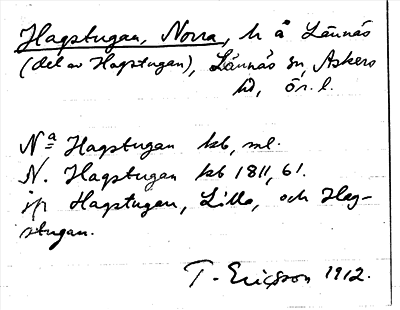 Hagstugan, Norra, h å Lännäs
(del av Hagstugan), Lännäs sn, Askers
hd, ör. l.
Nª Hagstugan kb, ml.
N. Hagstugan kb 1811, 61.
jfr Hagstugan, Lilla, och Hag-
stugan.
T. Ericsson 1912.